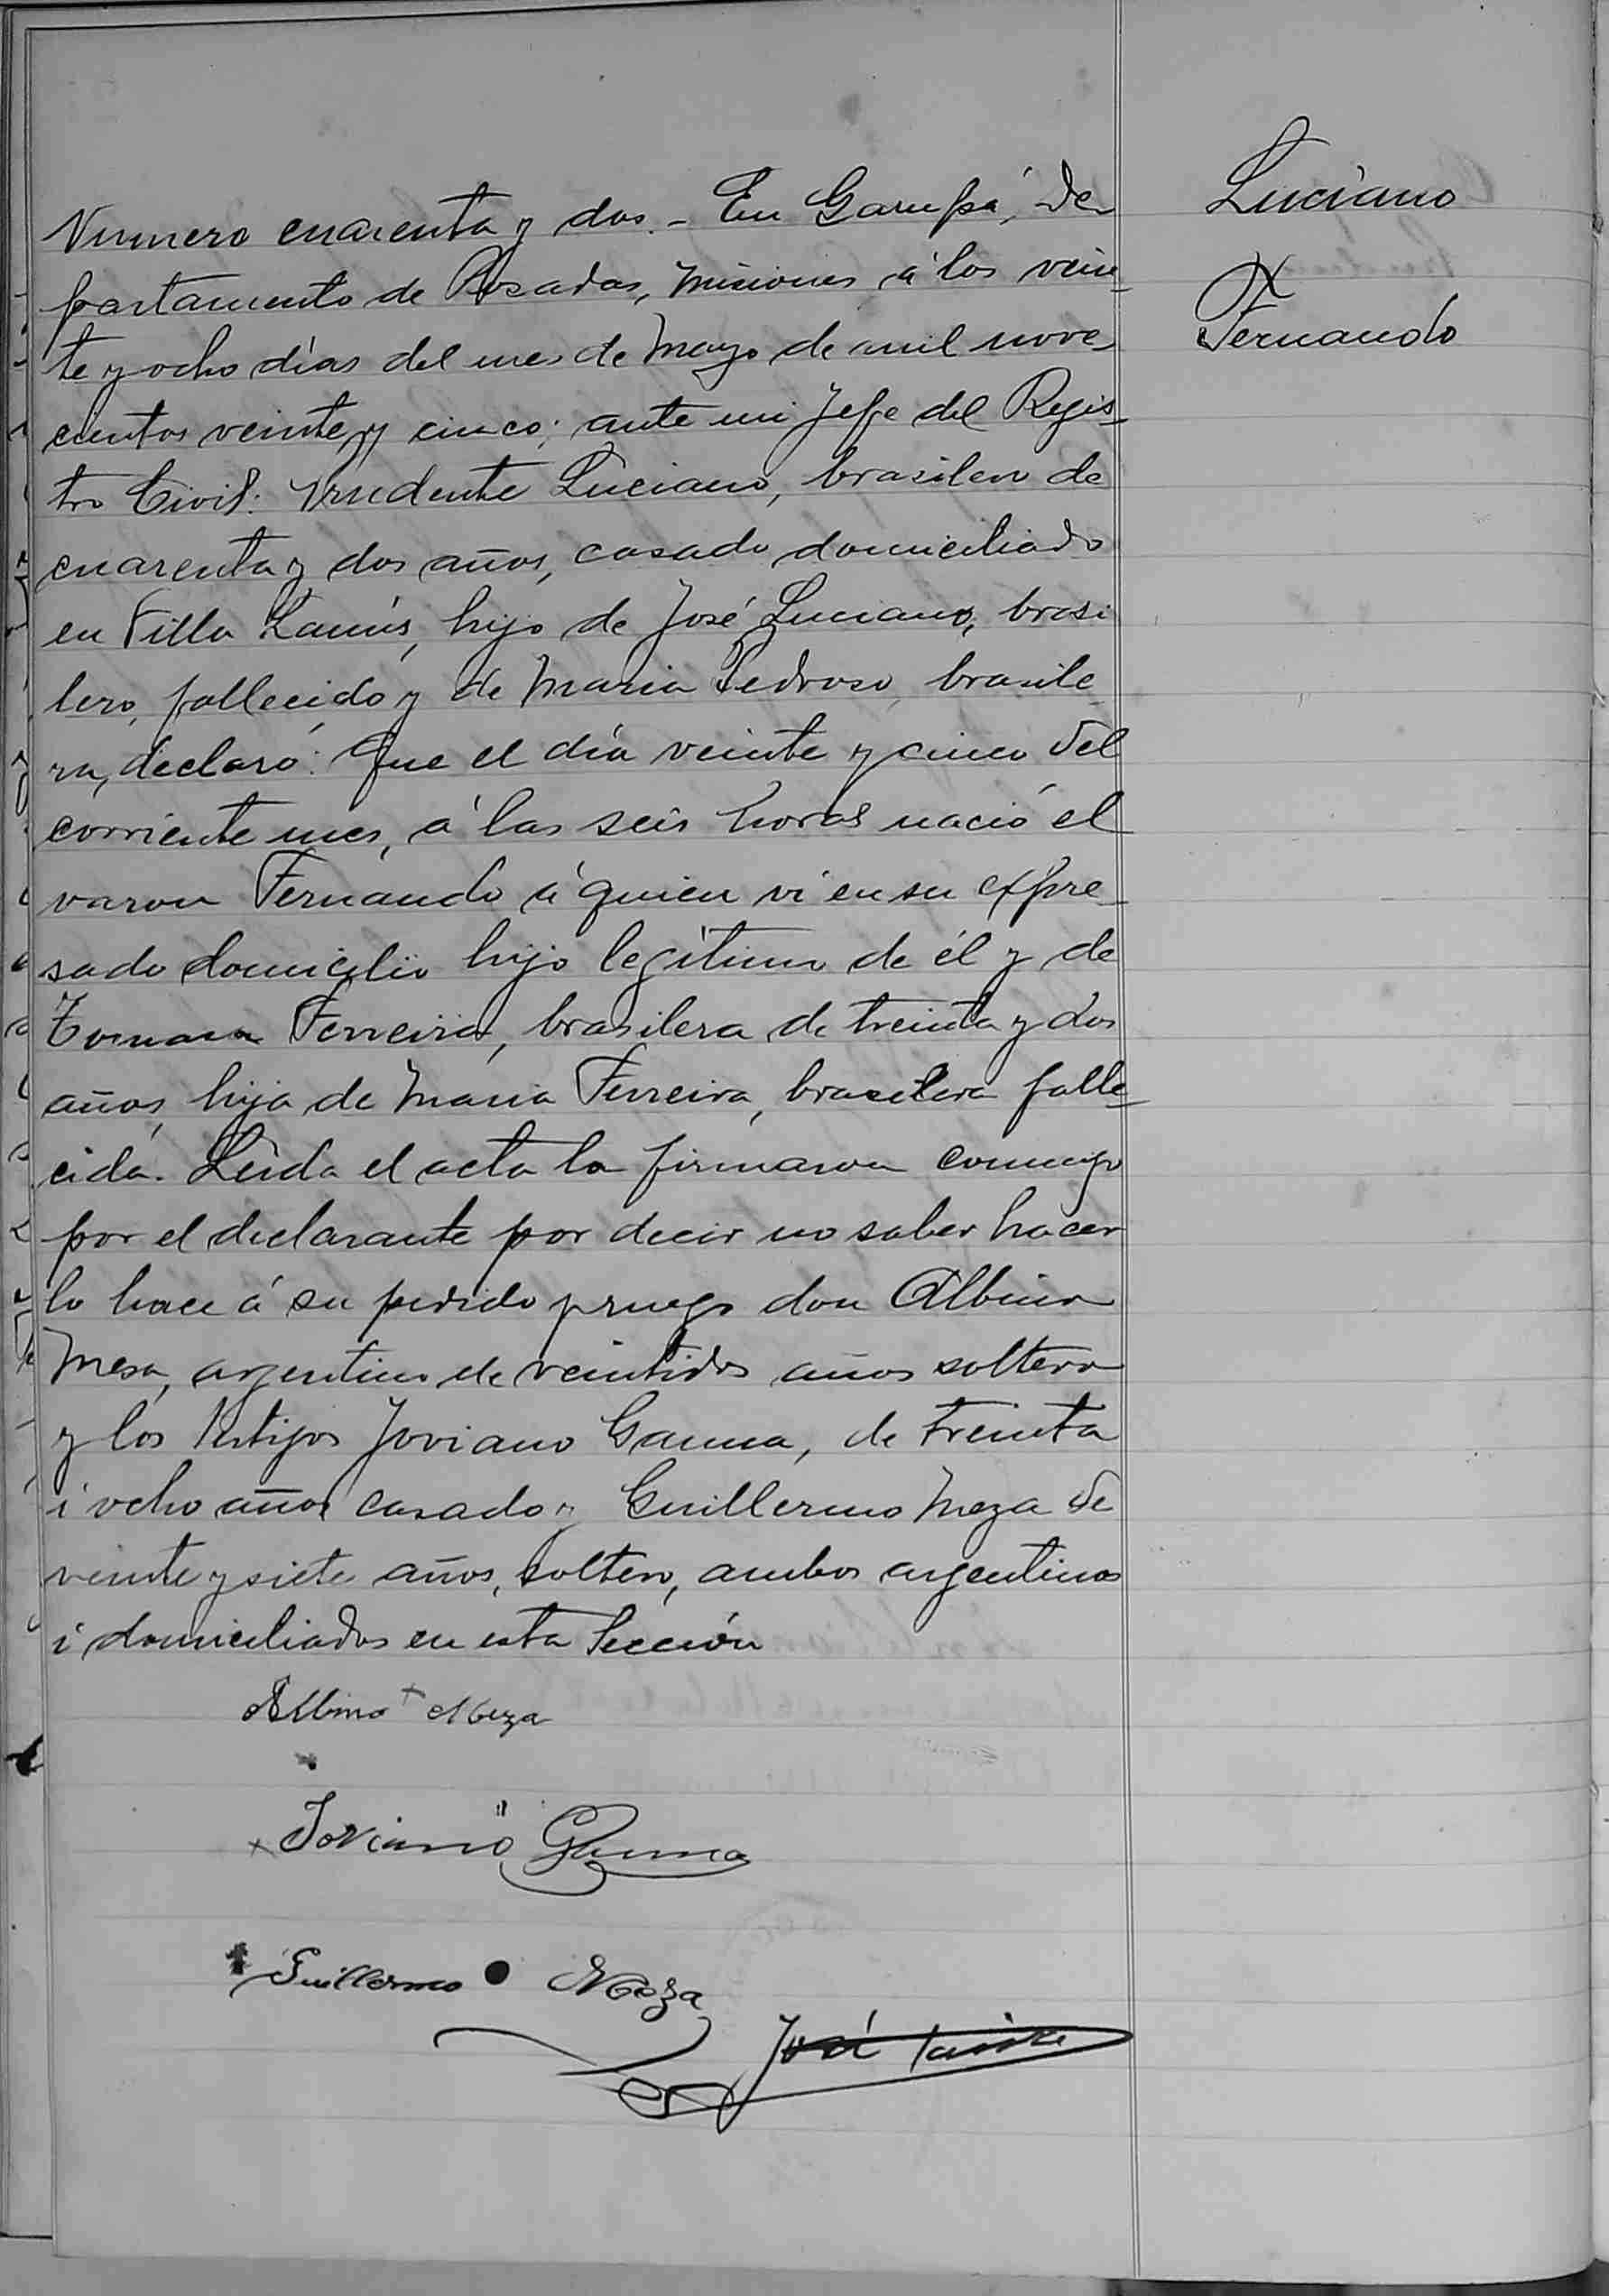 Luciano
Fernando
Numero cuarenta y dos.- En Garupá, de
partamento de Posadas, Misiones á los vein-
te y ocho días del mes de Mayo de mil nove
cientos veinte y cinco; ante mi Jefe del Regis-
tro Civil: Prudente Luciano, brasilero de
cuarenta y dos años, casado domiciliado
en Villa Lanús, hijo de José Luciano, brasi
lero, fallecido y de Maria Pedroso, brasile
ra, declaró: Que el día veinte y cinco del
corriente mes, á las seis horas nació el
varon Fernando á quien ví en su expre-
sado domicilio hijo legítimo de él y de
Ferreira, brasilera de treinta y dos
años, hija de Maria Ferreira, brasilera falle-
cida. Leida el acta la firmaron conmigo
por el declarante por decir no saber hacer
lo hace á su pedido y ruego don Albino
Mesa, argentino de veintidos años soltero
y los testigos Joviano Gauna, de treinta
i ocho años casado y Guillermo Meza de
veinte y siete años, soltero, ambos argentinos
i domiciliados en esta Sección
Albino Meza
Joviano Gauna
Guillermo Meza
José